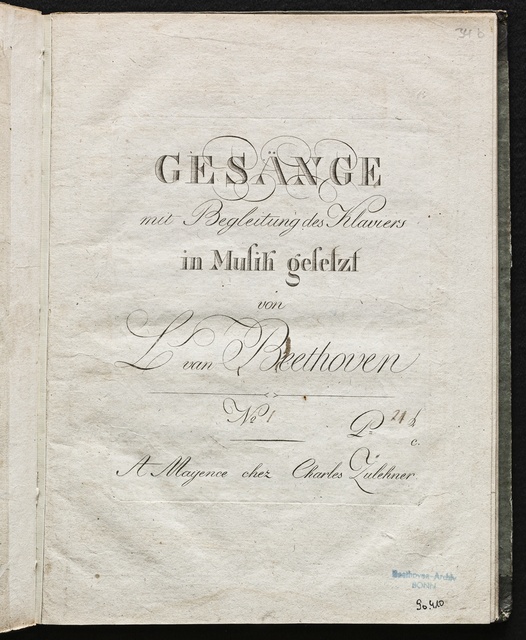 34 b
GESÄNGE
mit Begleitung des Klaviers
in Muſik geſetzt
von
L. van Beethoven
No 1
Pr. 24
A Mayence chez Charles Zulehner.
Beethoven-Archiv
BONN